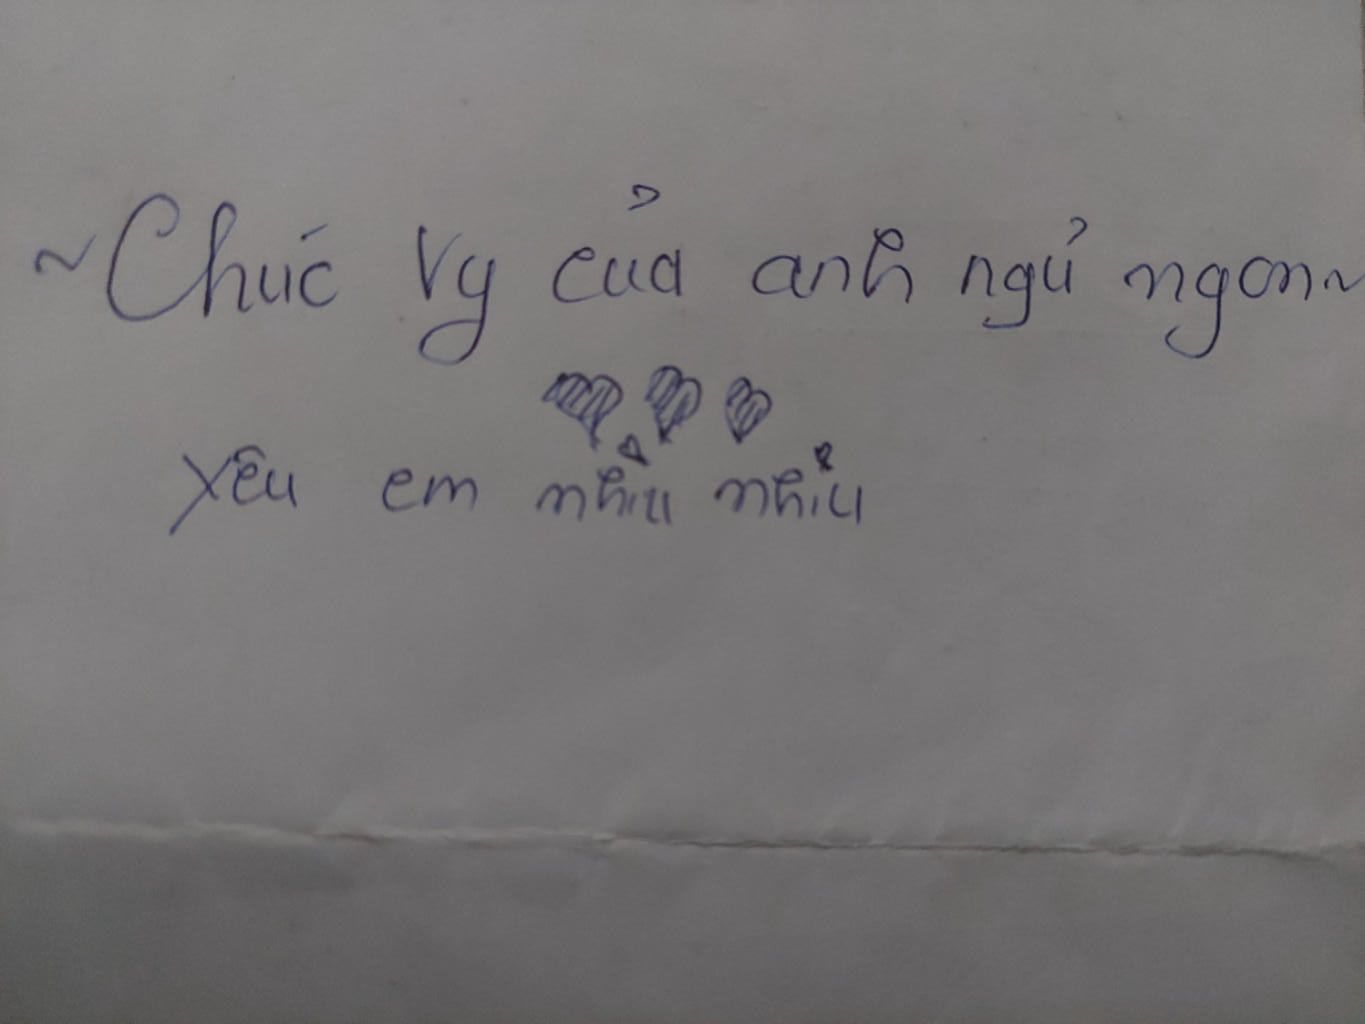 ~Chúc Vy của anh ngủ ngon~
Yêu em nhìu nhỉu